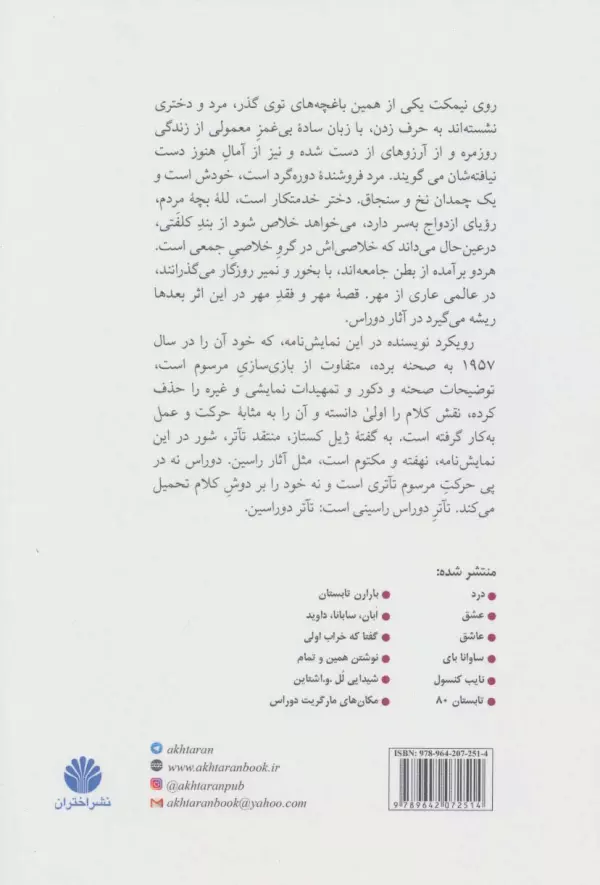 روی نیمکت یکی از همین باغچه‌های توی گذر، مرد و دختری
نشسته‌اند به حرف زدن، با زبان سادهٔ بی‌غمزِ معمولی از زندگی
روزمره و از آرزوهای از دست شده و نیز از آمالِ هنوز دست
نیافته‌شان می گویند. مرد فروشندهٔ دوره‌گرد است، خودش است و
یک چمدان نخ و سنجاق. دختر خدمتکار است، للهٔ بچهٔ مردم،
رؤیای ازدواج به‌سر دارد، می‌خواهد خلاص شود از بندِ کلفَتی،
درعین‌حال می‌داند که خلاصی‌اش در گروِ خلاصیِ جمعی است.
هردو برآمده از بطن جامعه‌اند، با بخور و نمیر روزگار می‌گذرانند،
در عالمی عاری از مهر. قصهٔ مهر و فقدِ مهر در این اثر بعدها
ریشه می‌گیرد در آثار دوراس.
رویکرد نویسنده در این نمایش‌نامه، که خود آن را در سال
۱۹۵۷ به صحنه برده، متفاوت از بازی‌سازیِ مرسوم است،
توضیحات صحنه و دکور و تمهیدات نمایشی و غیره را حذف
کرده، نقش کلام را اولیٰ دانسته و آن را به مثابهٔ حرکت و عمل
به‌کار گرفته است. به گفتهٔ ژیل کستاز، منتقد تآتر، شور در این
نمایش‌نامه، نهفته و مکتوم است، مثل آثار راسین. دوراس نه در
پی حرکتِ مرسوم تآتری است و نه خود را بر دوشِ کلام تحمیل
می‌کند. تآترِ دوراس راسینی است: تآتر دوراسین.
منتشر شده:
درد
عشق
عاشق
ساوانا بای
نایب کنسول
تابستان ۸۰
بارارن تابستان
اَبان، سابانا، داوید
گفتا که خراب اولی
نوشتن همین و تمام
شیدایی لُل .و.اشتاین
مکان‌های مارگریت دوراس
ISBN: 978-964-207-251-4
9 789642 072514
akhtaran
www.akhtaranbook.ir
@akhtaranpub
akhtaranbook@yahoo.com
نشراختران